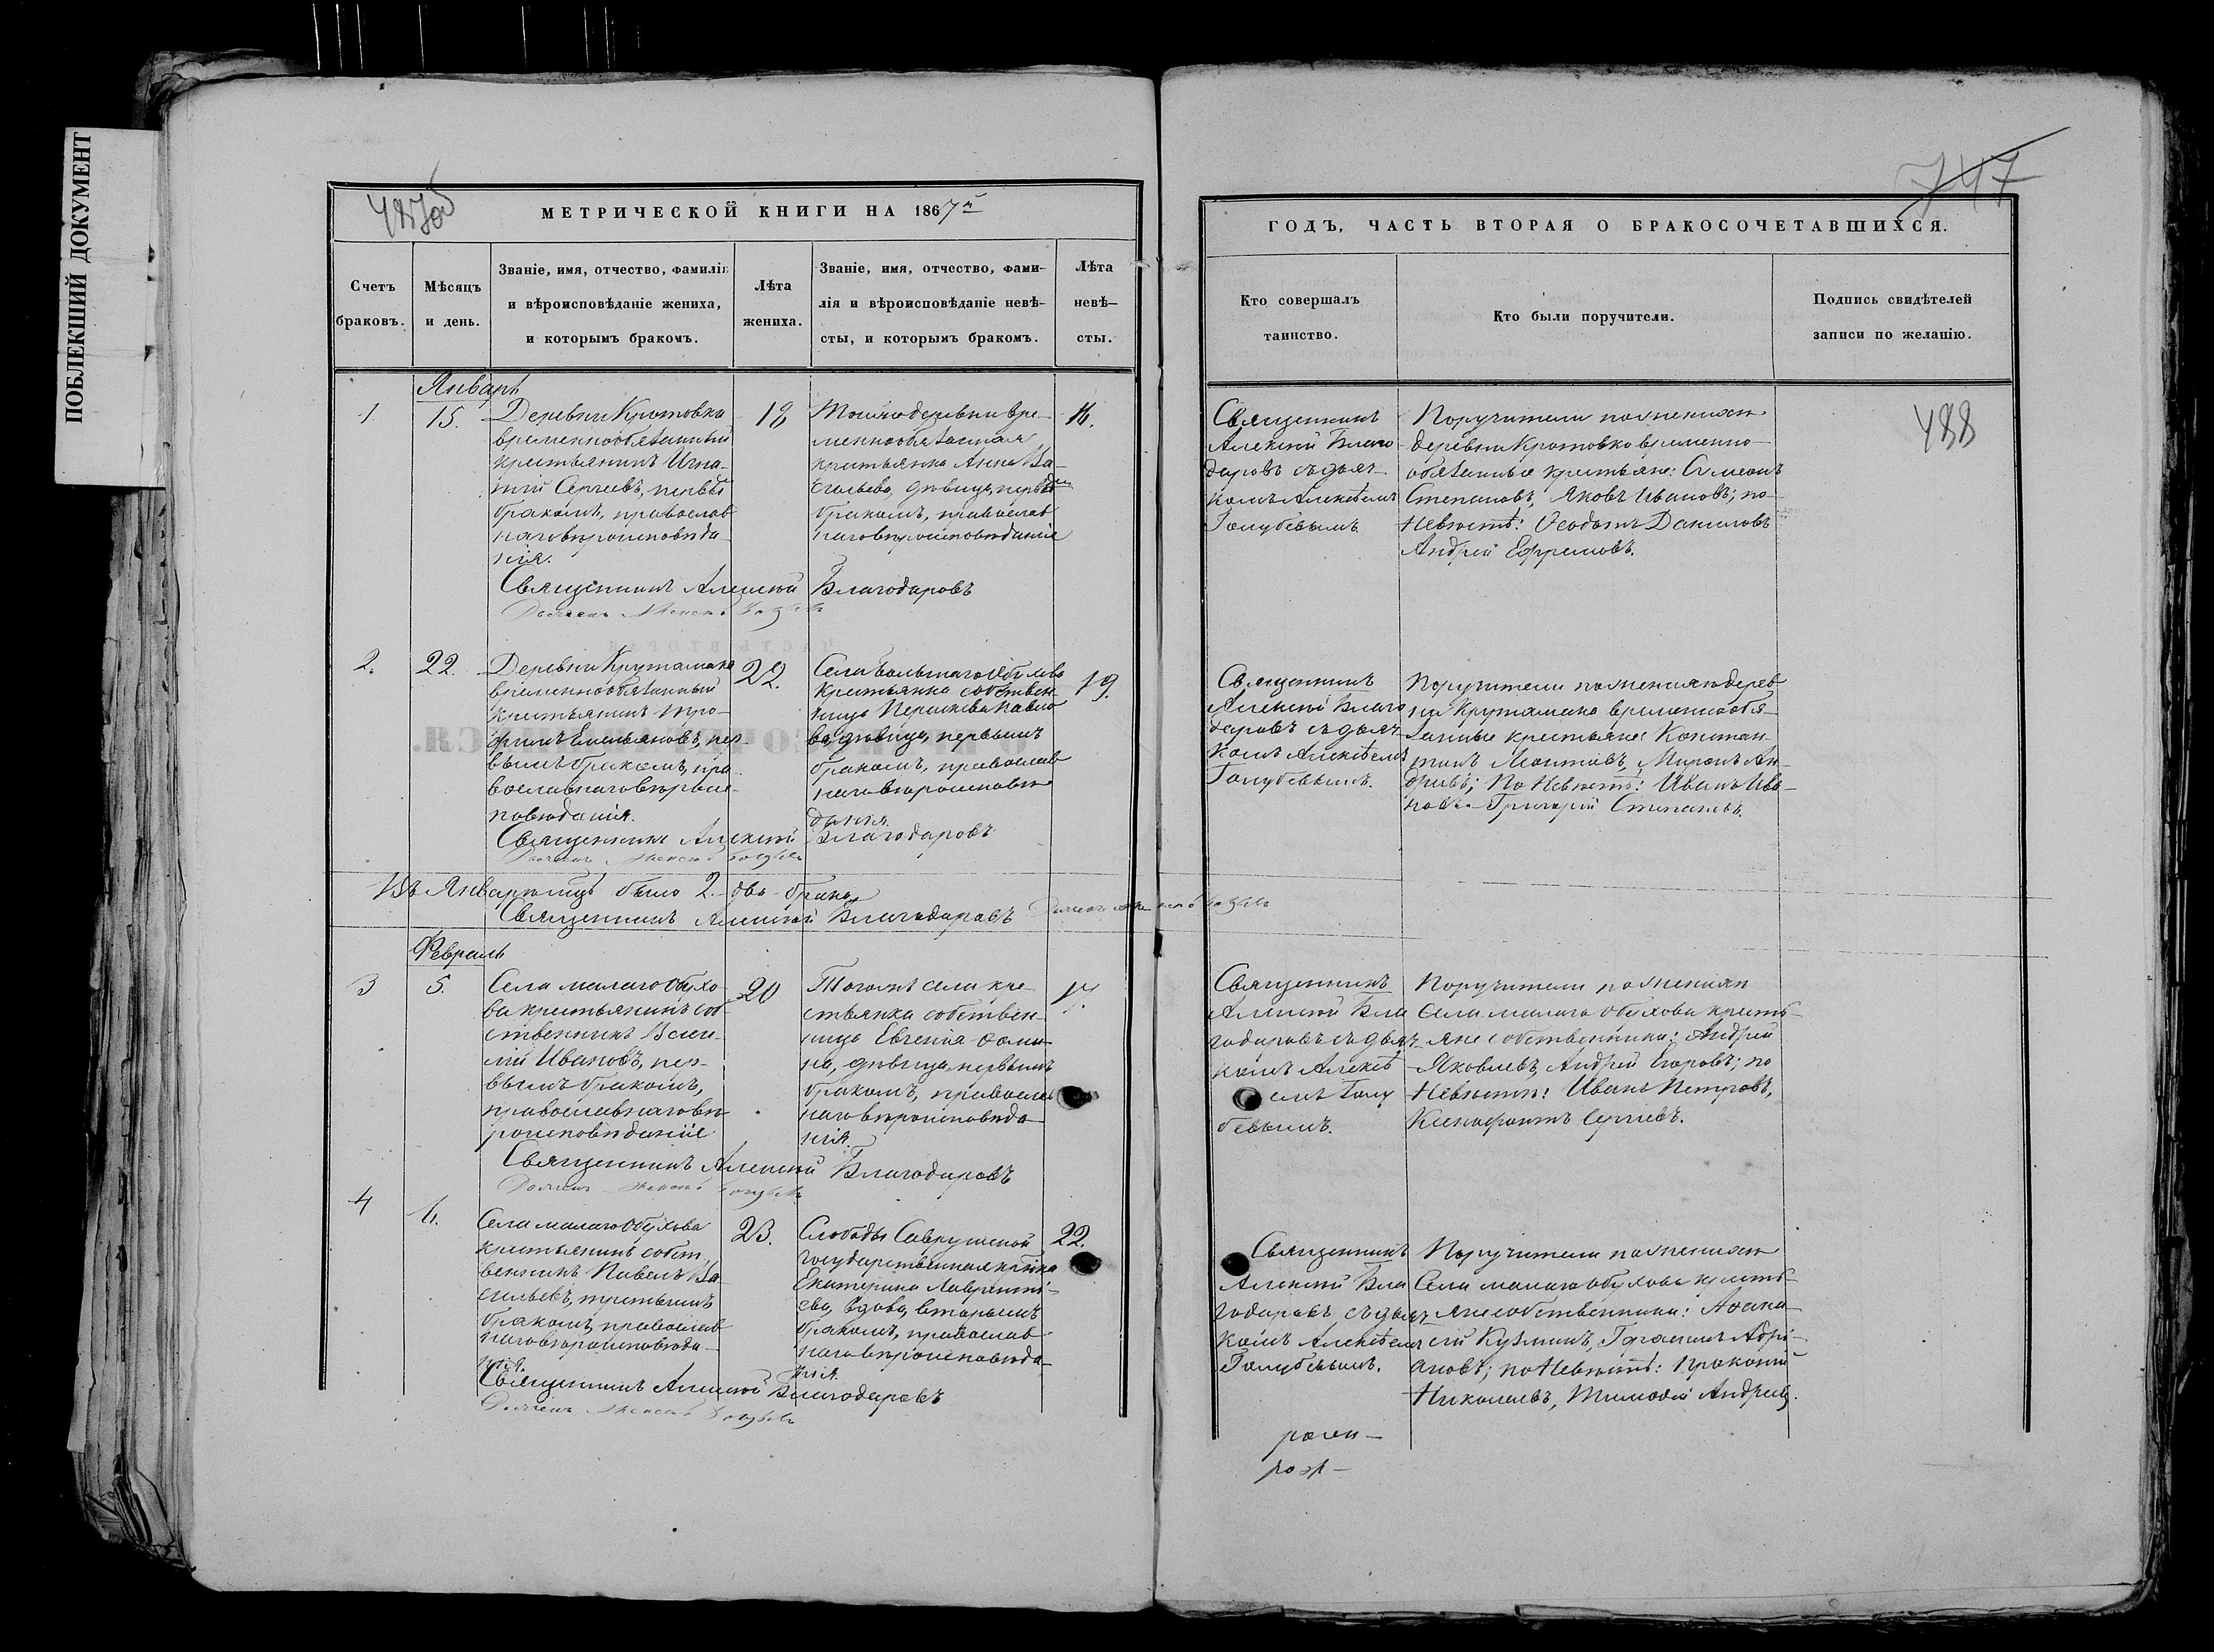 ПОБЛЕКШИЙ ДОКУМЕНТ
МЕТРИЧЕСКОЙ КНИГИ НА 1867й
Счетъ браковъ.
Мѣсяцъ и день.
Званіе, имя, отчество, фамилія
и вѣроисповѣданіе жениха,
и которымъ бракомъ.
Лѣта жениха.
Званіе, имя, отчество, фами-
лія и вѣроисповѣданіе невѣ-
сты, и которымъ бракомъ.
Лѣта невѣ-
сты.
Январь
1.
15.
Деревни Кротовки
временнообязанный
крестьянинъ Игна-
тій Сергеевъ, первымъ
бракомъ, православ
наго вѣроисповѣда
нія.
18
Тойже деревни вре-
меннообязанная
крестьянка Анна Ва-
сильева, дѣвица, первымъ
бракомъ, православ
наго вѣроисповѣданія
16.
Священникъ Алексій Благодаровъ
Дьячекъ Алексѣй Голубевъ
2.
22.
Деревни Круташка
временнообязанный
крестьянинъ Тро-
фимъ Емельяновъ, пер-
вымъ бракомъ, пра-
вославнаго вѣроис-
повѣданія.
22.
Села Большаго Обухова
крестьянка собствен-
ница Параскева Павло
ва, дѣвица, первымъ
бракомъ, православ
наго вѣроисповѣ
данія.
19.
Священникъ Алексій Благодаровъ
Дьячекъ Алексѣй Голубевъ
Въ Январѣ мцѣ было 2. два брака
Священникъ Алексій Благодаровъ Дьячекъ Алексѣй Голубевъ
Февраль
3
5.
Села малаго Обухо-
ва крестьянинъ соб-
ственникъ Васи-
лій Ивановъ, пер-
вымъ бракомъ,
православнаго вѣ
роисповѣданія
20
Тогоже села кре-
стьянка собствен-
ница Евгенія Фоми-
на, дѣвица, первымъ
бракомъ, православ
наго вѣроисповѣда
нія.
17.
Священникъ Алексій Благодаровъ
Дьячекъ Алексѣй Голубевъ
4
6.
Села малаго Обухова
крестьянинъ собст
венникъ Павелъ Ва
сильевъ, третьимъ
бракомъ, православ
наго вѣроисповѣда-
нія.
23.
Слободы Саврушской
государственная кр-нка
Екатерина Лаврентіе-
ва, вдова, вторымъ
бракомъ, православ
наго вѣроисповѣда-
нія.
22.
Священникъ Алексій Благодаровъ
Дьячекъ Алексѣй Голубевъ
747
ГОДЪ, ЧАСТЬ ВТОРАЯ О БРАКОСОЧЕТАВШИХСЯ.
Кто совершалъ
таинство.
Кто были поручители.
Подпись свидѣтелей
записи по желанію.
488
Священникъ
Алексій Благо-
даровъ съ дьяч-
комъ Алексѣемъ
Голубевымъ.
Поручители по женихѣ
деревни Кротовки временно-
обязанные крестьяне: Симеонъ
Степановъ, Яковъ Ивановъ; по
Невѣстѣ: Феодотъ Даниловъ
Андрей Ефремовъ.
Священникъ
Алексій Благо
даровъ съ дьяч-
комъ Алексѣемъ
Голубевымъ.
Поручители по женихѣ дерев
ни Круташка временнообя-
занные крестьяне: Констан-
тинъ Миронъ Ан-
дреевъ; По Невѣстѣ: Иванъ Ива-
новъ Григорій Степановъ.
Священникъ
Алексій Бла
годаровъ съ дьяч-
комъ Алексѣ
емъ Голу
бевымъ.
Поручители по женихѣ
Села малаго Обухова кресть-
яне собственники: Андрей
Яковлевъ, Андрей Егоровъ; по
Невѣстѣ: Иванъ Петровъ,
Ксенофонтъ Сергеевъ.
Священникъ
Алексій Бла
годаровъ съ дьяч-
комъ Алексѣемъ
Голубевымъ.
Поручители по женихѣ
Села малаго Обухова кресть-
яне собственники: Афана-
сій Кузминъ, Герасимъ Адрі-
ановъ; по Невѣстѣ: Прокопій
Николаевъ, Тимофей Андреевъ.